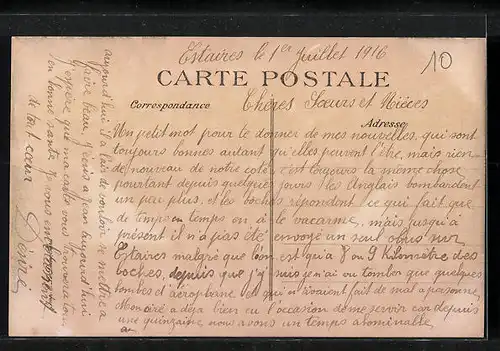 Estaires le 1er Juillet 1916
10
CARTE POSTALE
Correspondance
Chères Sœurs et Nièces
Adresse
Un petit mot pour te donner de mes nouvelles, qui sont
toujours bonnes autant qu'elles peuvent l'être, mais rien
de nouveau de notre coté, c'est toujours la même chose
pourtant depuis quelques jours les Anglais bombardent
un peu plus, et les boches répondent ce qui fait que
de temps en temps on a le vacarme, mais jusqu'à
présent il n'a pas été envoyé un seul obus sur
Estaires malgré que l'on est qu'à 8 ou 9 Kilomètre des
boches, depuis que j'y suis je n'ai vu tomber que quelques
bombes d'aéroplane et qui n'avaient fait de mal a personne,
Mon ciré a déja bien eu l'occasion de me servir car depuis
une quinzaine nous avons un temps abominable,
aujourd'hui il a l'air de vouloir se mettre a
faire beau,
J'espère que ma carte vous trouvera tous
en bonne santé, je vous
de tout cœur
Désiré